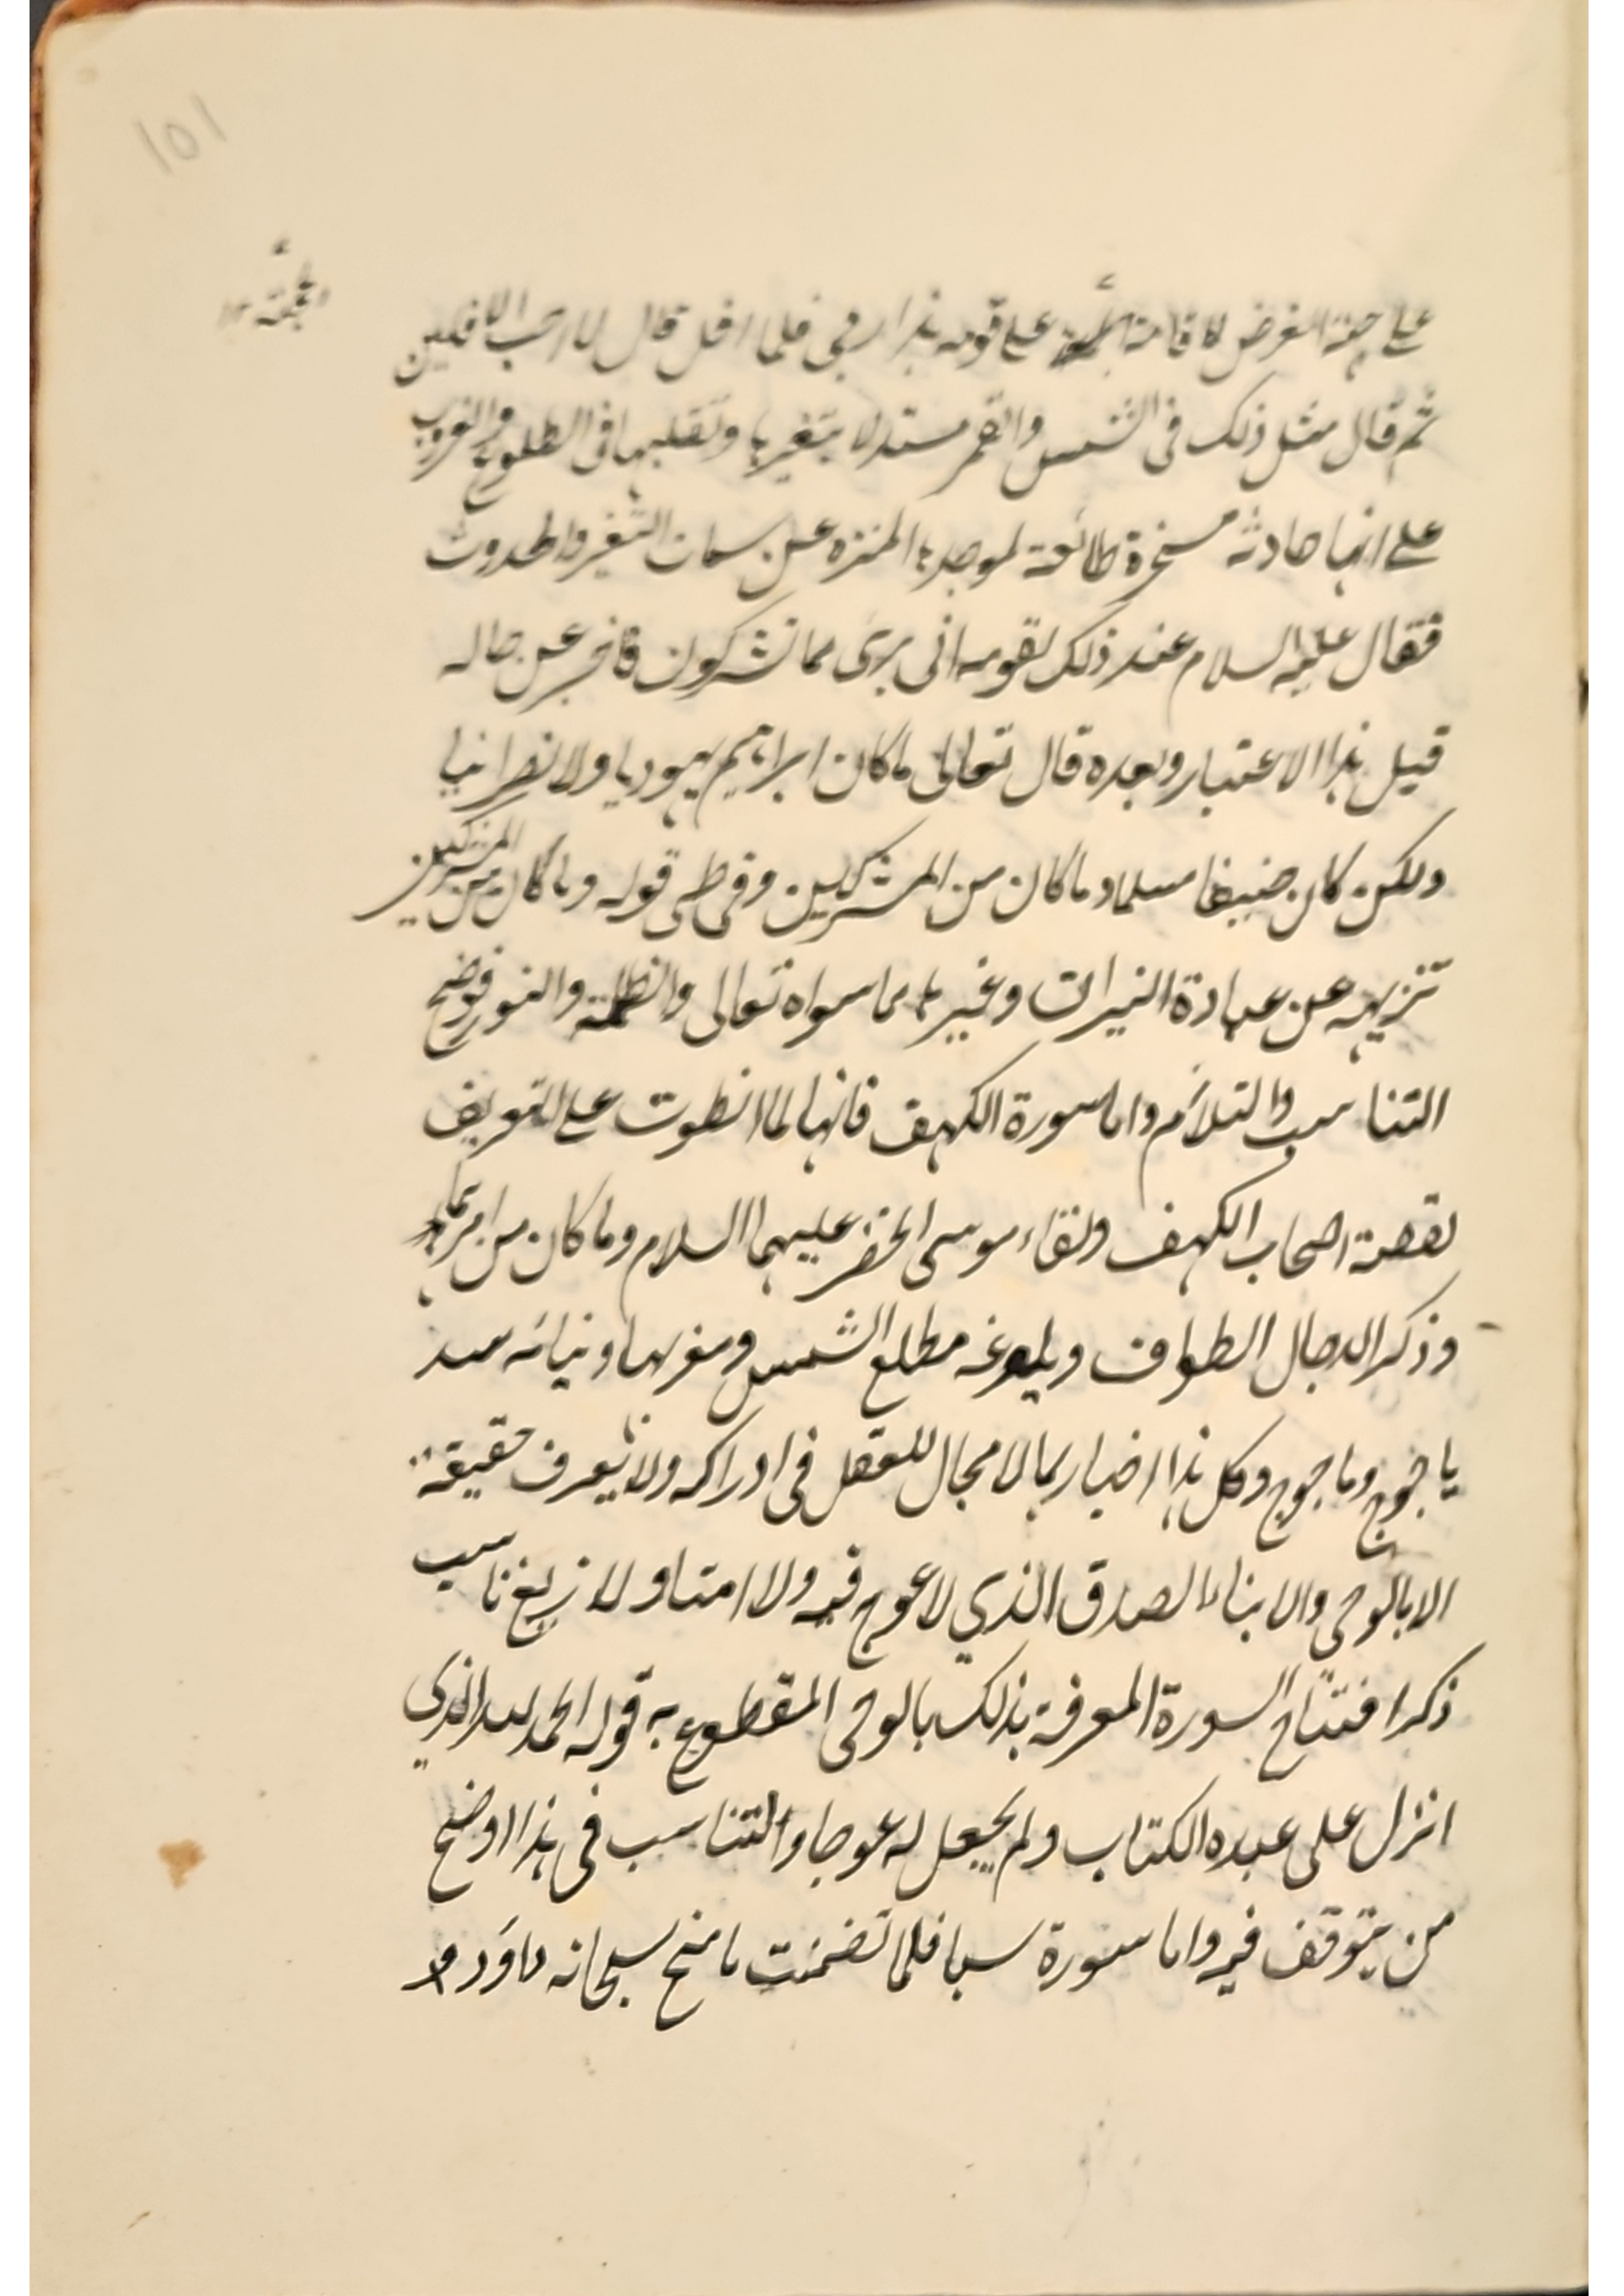 ١٥١
الحجة ١٢
على جهة الغرض لاقامة الحجة على قومه هذا ربى فلما افل قال لا احب الافلين
ثم قال مثل ذلك فى الشمس والقمر مستدلا بتغيرها وتقلبها فى الطلوع والغروب
على انها حادثة مسخرة طائعة لموجدها المنزه عن سمات التغير والحدوث
فقال عليه السلام عند ذلك لقومه انى برئ مما تشركون فاخبر عن حاله
قبل هذا الاعتبار وبعده قال تعالى ما كان ابراهيم يهوديا ولا نصرانيا
ولكن كان حنيفا مسلما وما كان من المشركين وفى طى قوله وما كان من المشركين
تنزيهه عن عبادة النيرات وغيرها مما سواه تعالى والظلمة والنور فوضح
التناسب والتلاؤم واما سورة الكهف فانها لما انطوت على التعريف
بقصة اصحاب الكهف ولقاء موسى الخضر عليهما السلام وما كان من امرهما
وذكر الدجال الطواف وبلوغه مطلع الشمس ومغربها وبنيانه سد
ياجوج وماجوج وكل هذا اخبار بما لا مجال للعقل فى ادراكه ولا يعرف حقيقة
الا بالوحى والانباء الصدق الذي لا عوج فيه ولا امتا ولا زيغ ناسب
ذكر افتتاح السورة المعرفة بذلك بالوحى المقطوع به قوله الحمد لله الذي
انزل على عبده الكتاب ولم يجعل له عوجا والتناسب فى هذا اوضح
من يتوقف فيه واما سورة سبا فلما تضمنت ما منح سبحانه داؤد و